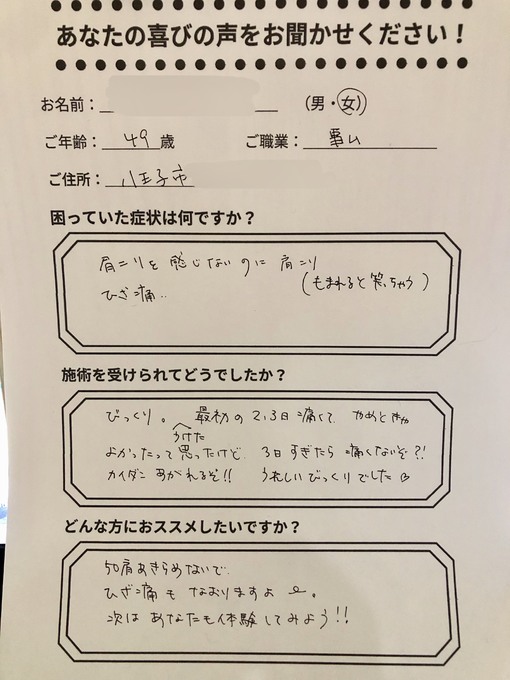 あなたの喜びの声をお聞かせください！
お名前： （男・女）
ご年齢： 49 歳 ご職業：
ご住所： 八王子市
困っていた症状は何ですか？
肩こりを感じないのに肩こり
（もまれると笑っちゃう）
ひざ痛..
施術を受けられてどうでしたか？
びっくり。最初の2,3日痛くて、やめときゃ
うけた
よかったって思ったけど、3日すぎたら痛くないぞ?!
カイダンあがれるぞ!! うれしいびっくりでした
どんな方におススメしたいですか？
50肩あきらめないで
ひざ痛もなおりますよ。
次はあなたも体験してみよう!!